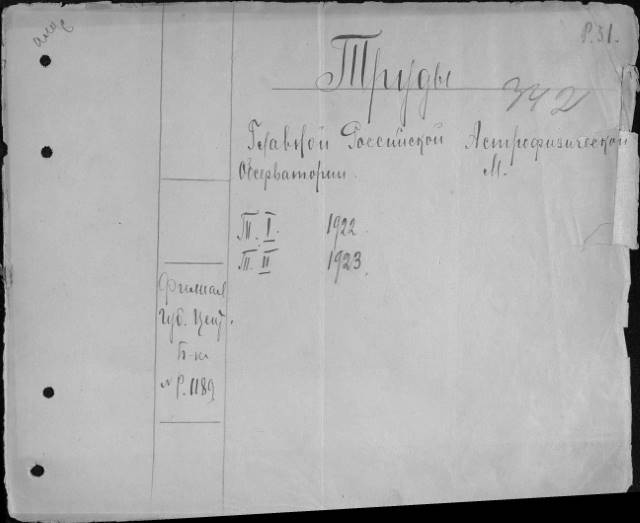 Р.31.
Труды
342
Главной Российской Астрофизической
Обсерватории М.
Т. I. 1922
Т. II 1923.
Филиал
Губ. Цент.
Б-ки
№ Р.1189